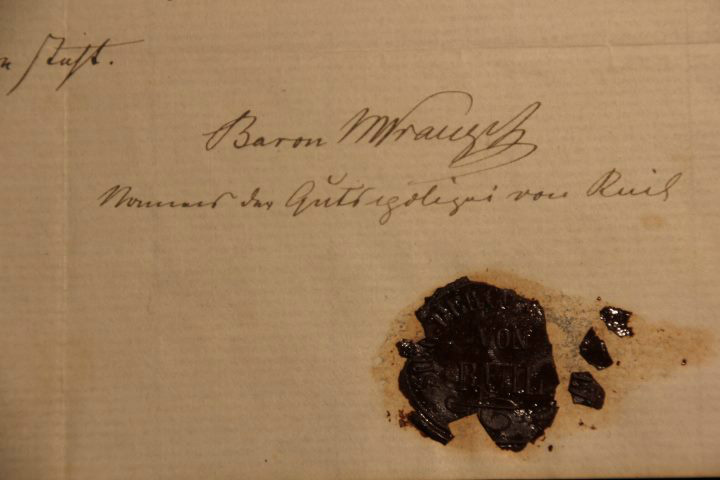 Baron Wrangel
Namens der Gutspolizei von Ruil
VON